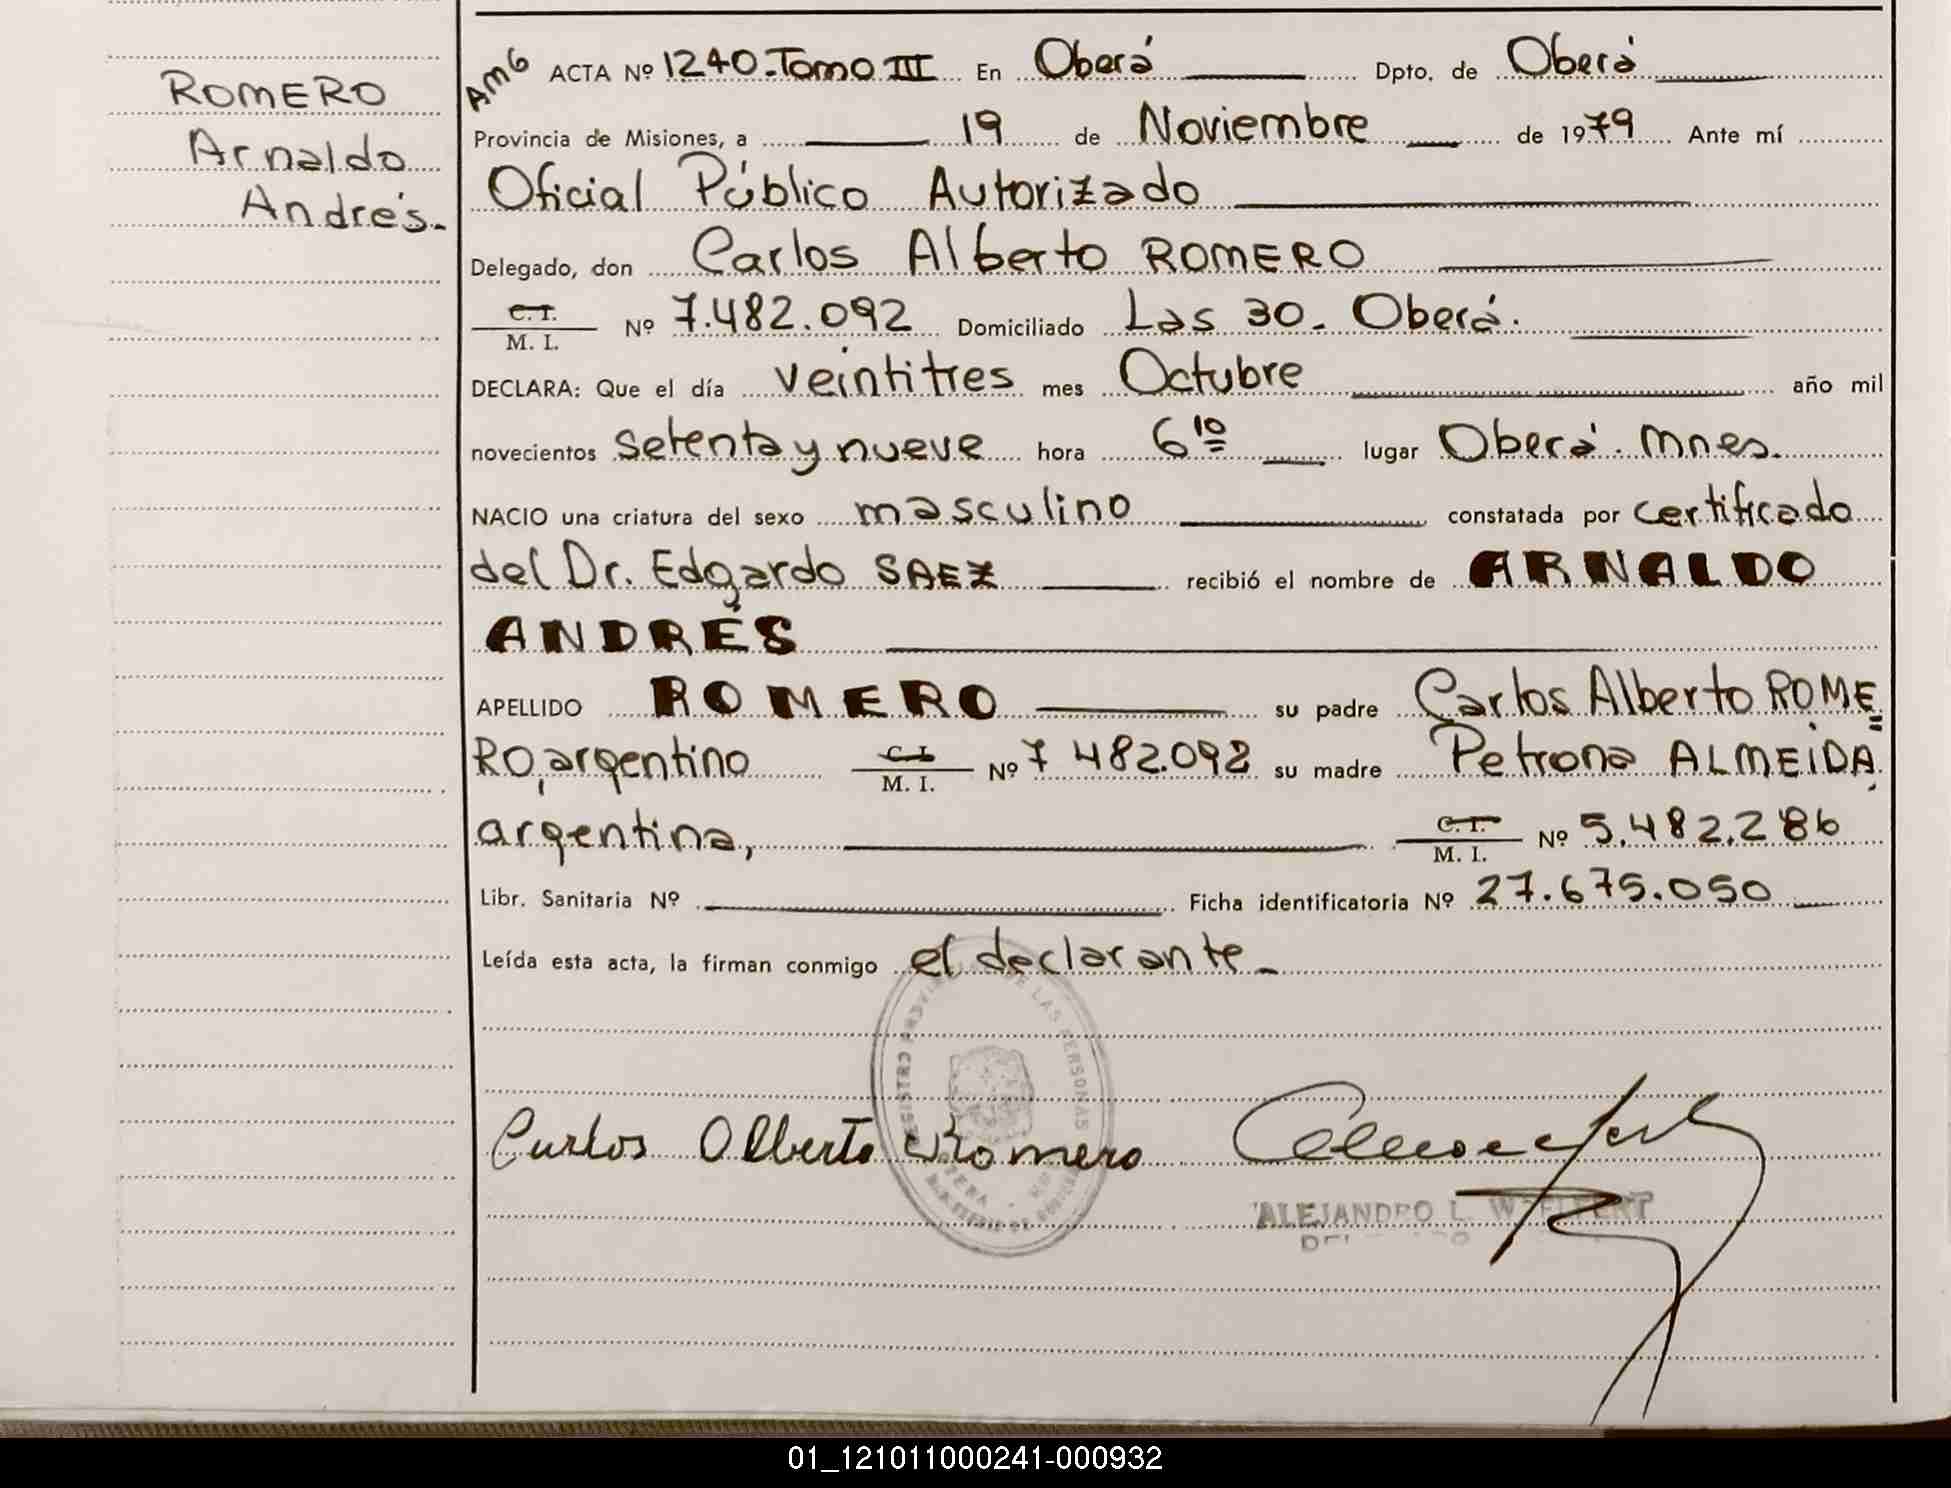 ROMERO
Arnaldo
Andrés.-
AmG
ACTA Nº 1240-Tomo III En Oberá Dpto. de Oberá
Provincia de Misiones, a 19 de Noviembre de 1979 Ante mí
Oficial Público Autorizado
Delegado, don Carlos Alberto ROMERO
C. I.
M. I. Nº 7.482.092 Domiciliado Las 30. Oberá.
DECLARA: Que el día veintitres mes Octubre año mil
novecientos setenta y nueve hora 6 10 lugar Oberá. Mnes.
NACIO una criatura del sexo masculino constatada por certificado
del Dr. Edgardo SAEZ recibió el nombre de ARNALDO
ANDRÉS
APELLIDO ROMERO su padre Carlos Alberto ROME=
RO, argentino C. I. M. I. Nº 7 482.092 su madre Petrona ALMEIDA,
argentina, C. I. M. I. Nº 5.482.286
Libr. Sanitaria Nº Ficha identificatoria Nº 27.675.050
Leída esta acta, la firman conmigo el declarante.-
DE LAS PERSONAS
Carlos Alberto Romero
ALEJANDRO L.
01_121011000241-000932